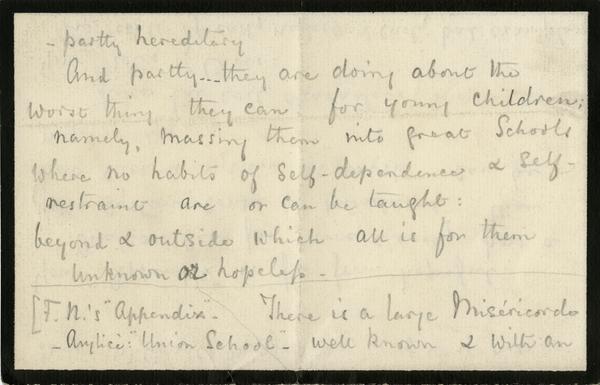 - partly hereditary
And partly---they are doing about the
worst thing they can for young children;
namely, massing them into great Schools
where no habits of Self-dependence & Self-
restraint are or can be taught:
beyond & outside which all is for them
unknown or hopeless -
[F. N.'s "Appendix" - There is a large Miséricorde
- Anglicè: "Union School" - well known & with an